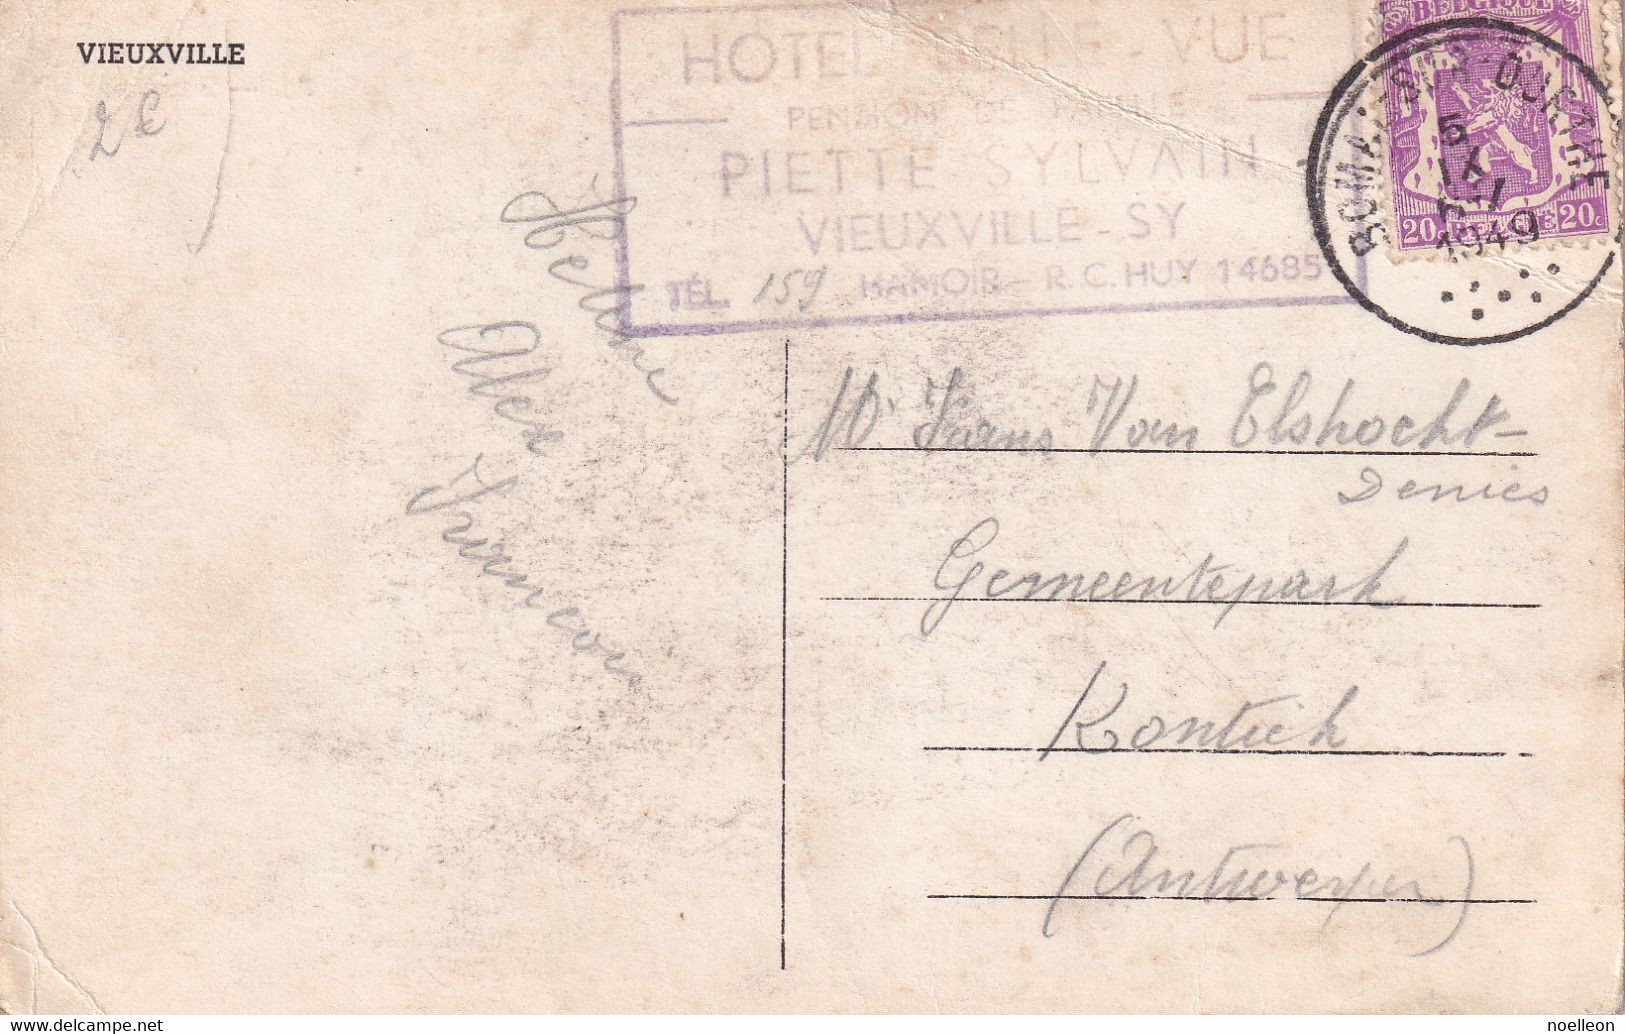 VIEUXVILLE
2 €
HOTEL BELLE-VUE
PENSION DE FAMILLE
PIETTE SYLVAIN
VIEUXVILLE-SY
TÉL. 159 HAMOIR - R.C. HUY 14685
BELGIQUE
20c BELGIE 20c
BOMAL-SUR-OURTHE
5
IX
1949
Hélène
Alex
François
Mr Frans Van Elshocht-
Denies
Gemeentepark
Kontich
(Antwerpen)
delcampe.net
noelleon